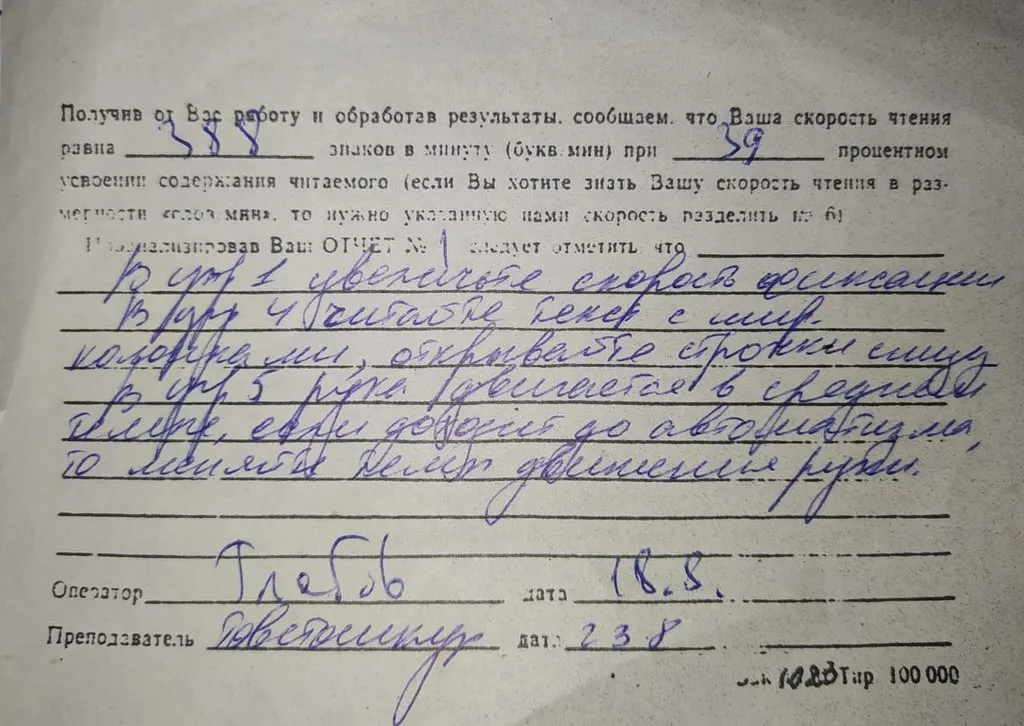 Получив от Вас работу и обработав результаты, сообщаем, что Ваша скорость чтения
равна 388 знаков в минуту (букв мин) при 39 процентном
усвоении содержания читаемого (если Вы хотите знать Вашу скорость чтения в раз-
мерности «слов мин», то нужно указанную нами скорость разделить на 6)
Проанализировав Ваш ОТЧЕТ № 1 следует отметить что
В упр 1 увеличьте скорость фиксации
В упр 4 читайте текст с
открывайте строки снизу
В упр 5 рука двигается в среднем
темпе, если доходит до автоматизма,
то меняйте темп движения руки.
Оператор дата 18.8.
Преподаватель дата 23 8
Зак 1023 Тир 100 000